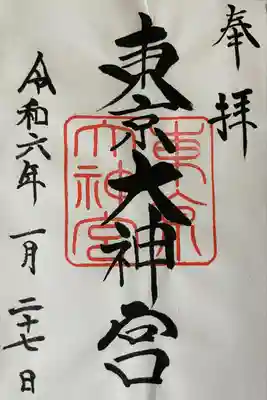 奉拝
東京大神宮
東京大神宮
令和六年 一月 二十七日